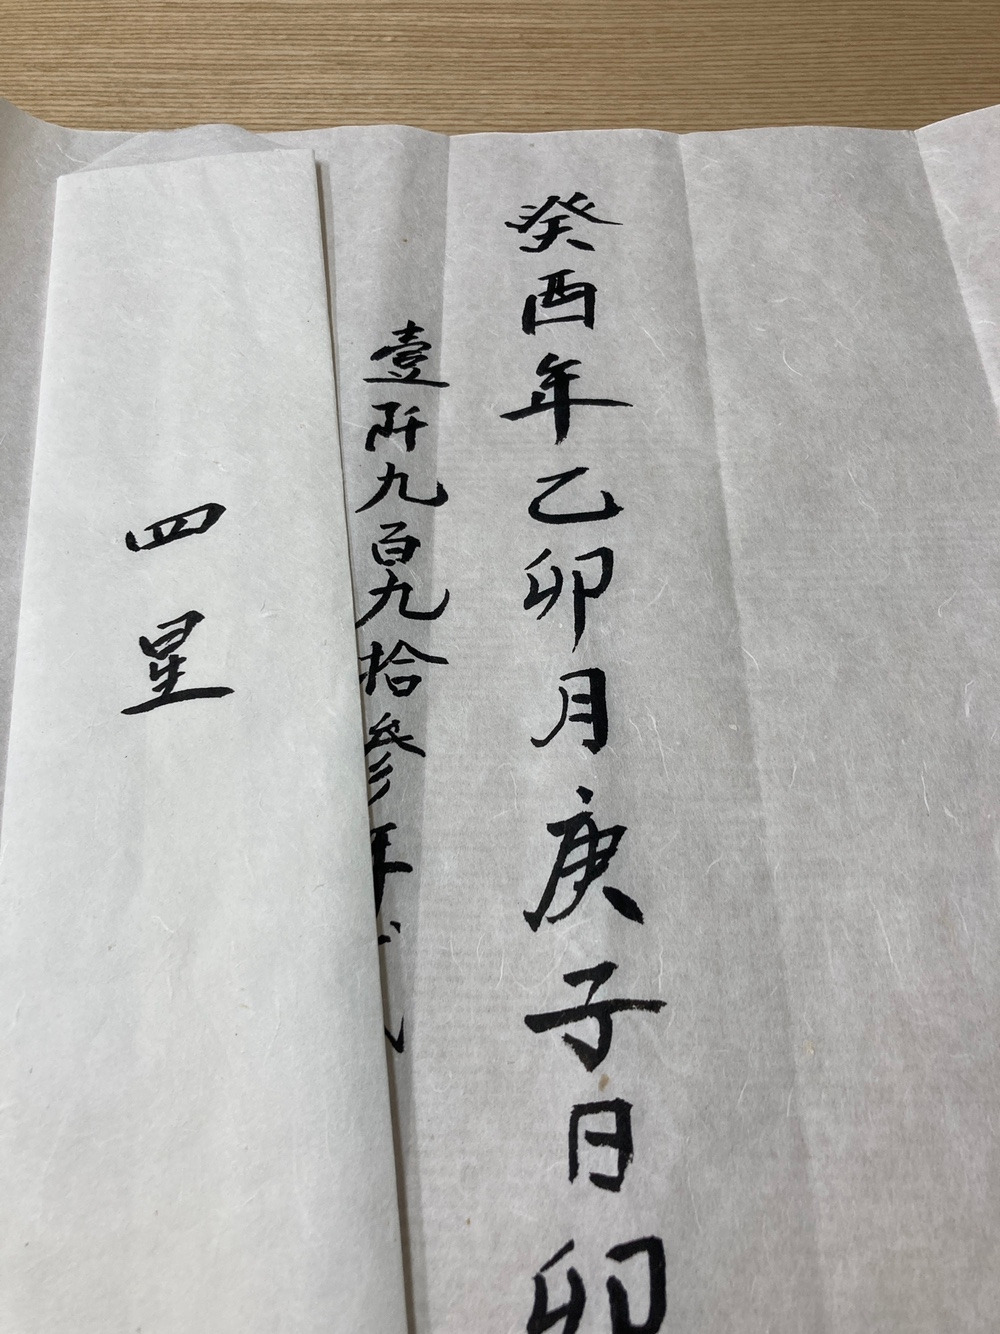 癸酉年乙卯月庚子日卯
壹阡九百九拾參年
四星